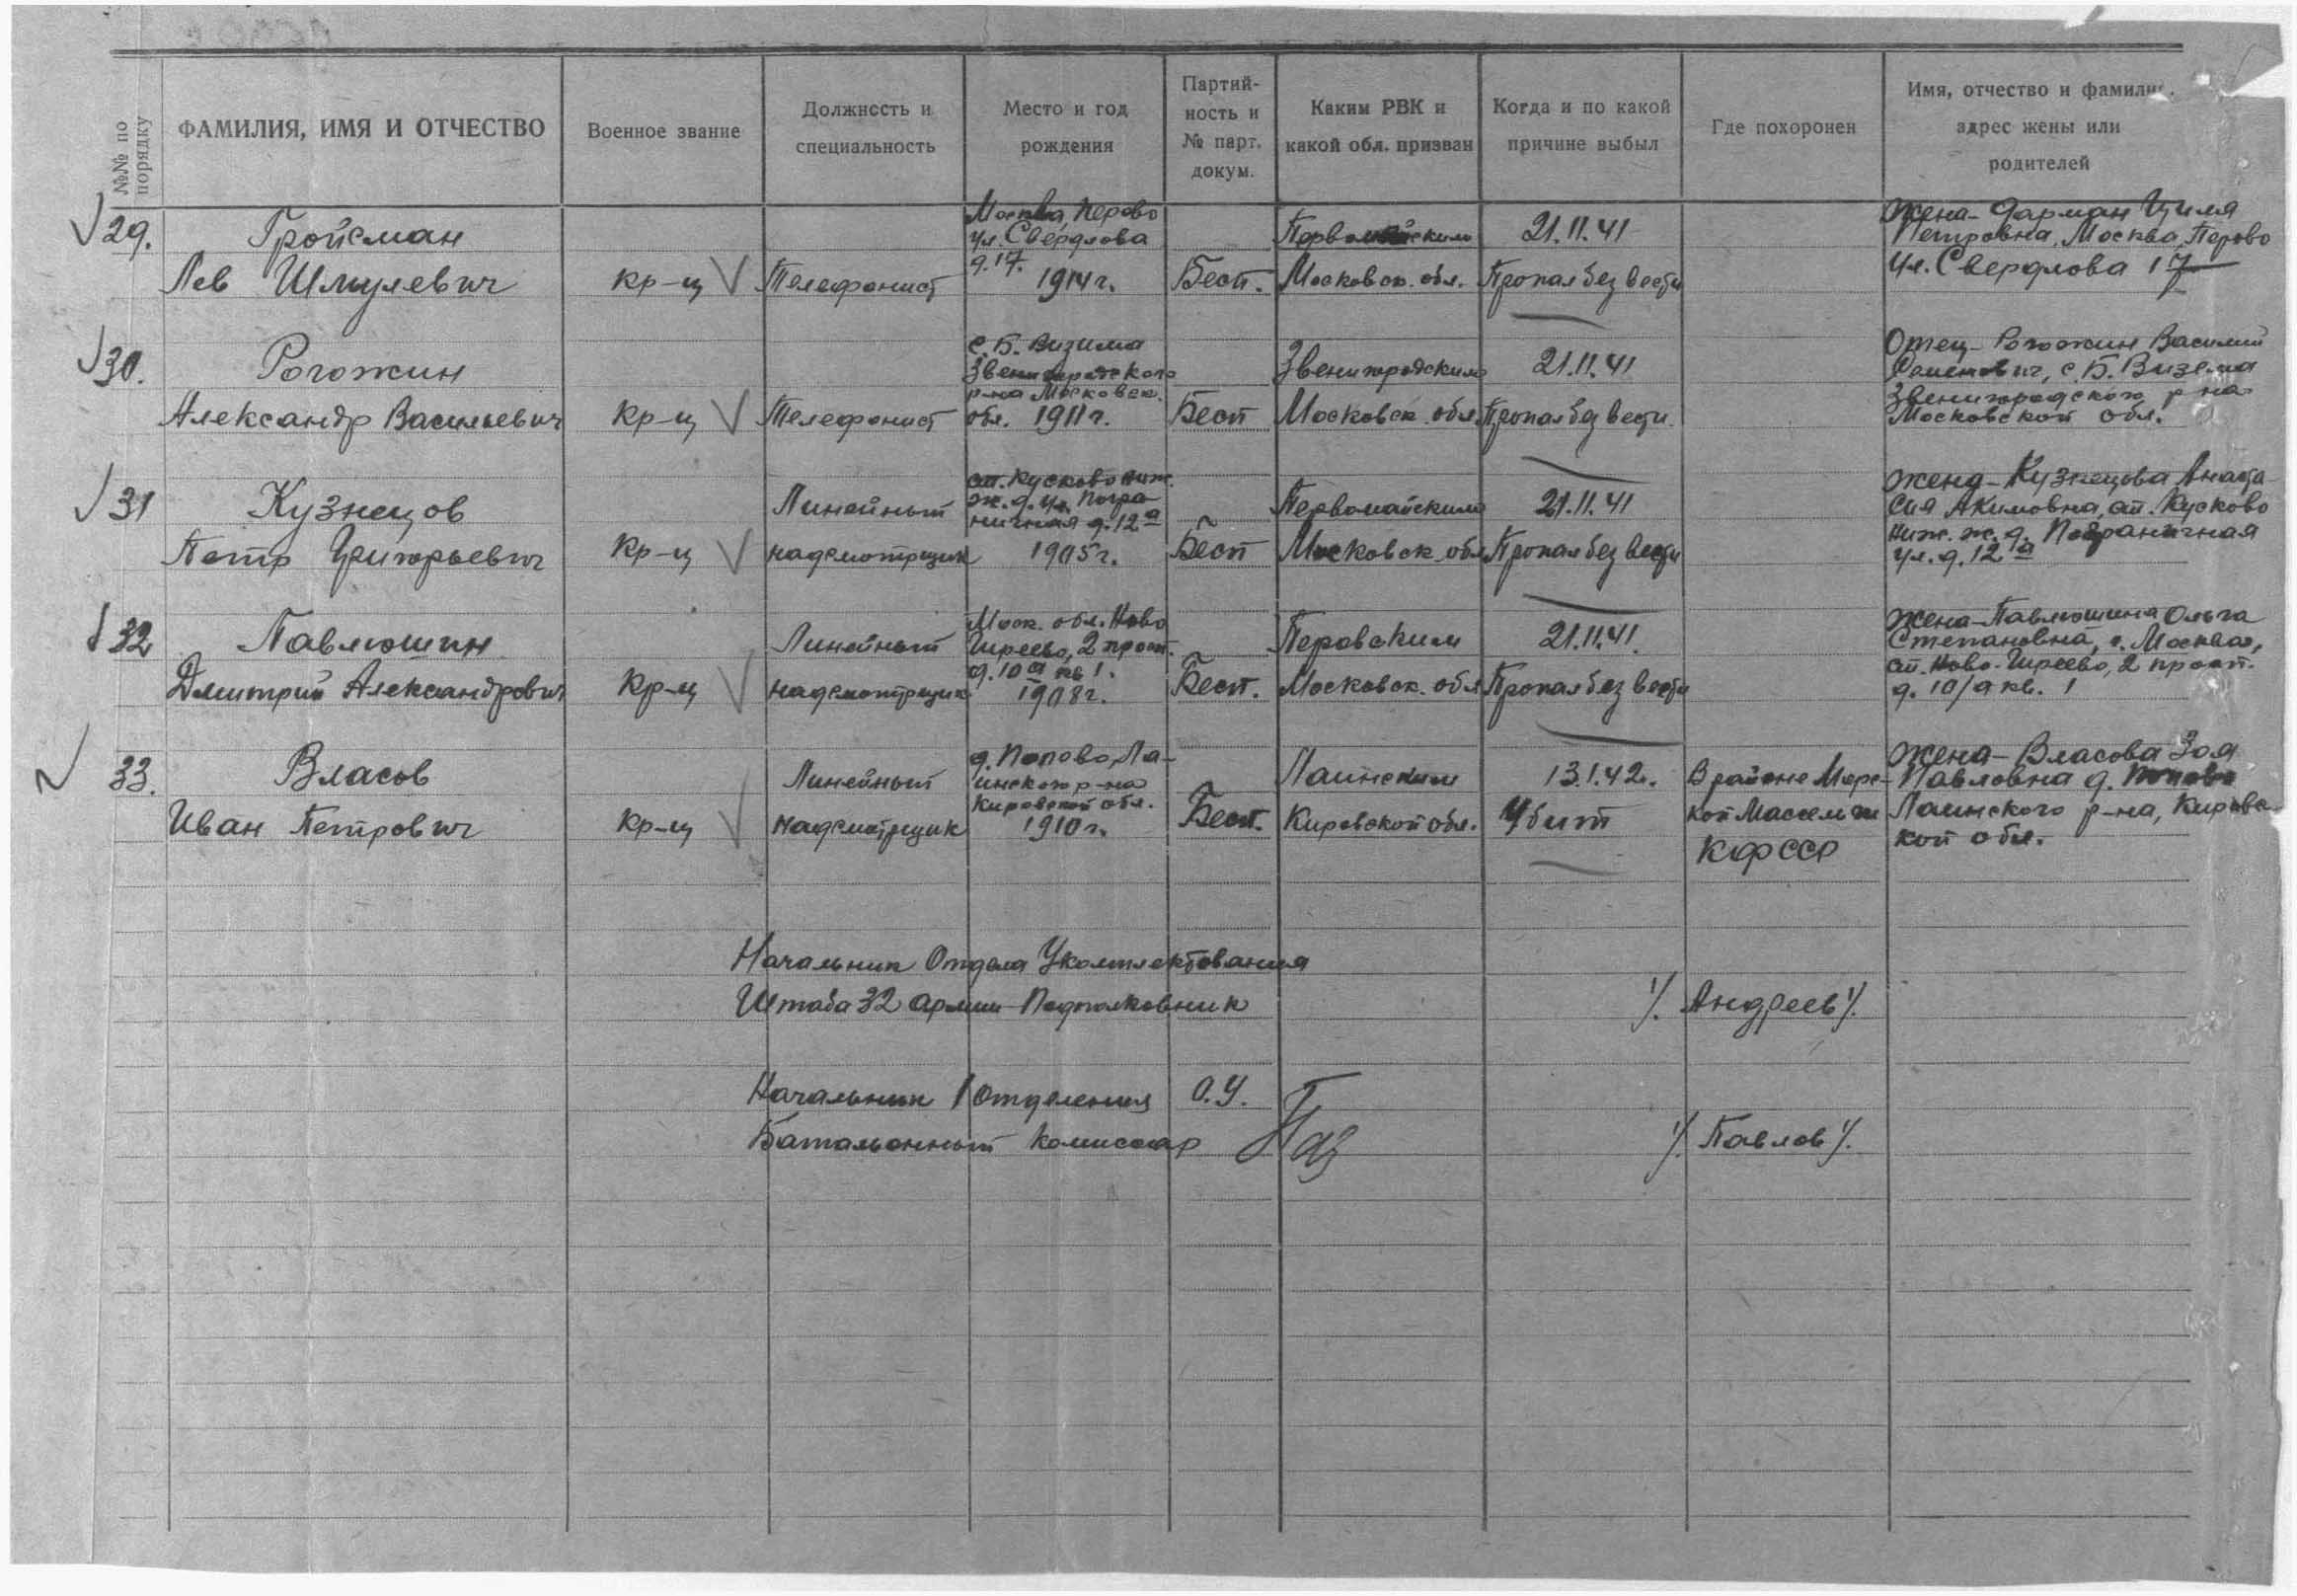 №№ по порядку
ФАМИЛИЯ, ИМЯ И ОТЧЕСТВО
Военное звание
Должность и специальность
Место и год рождения
Партий-
ность и
№ парт.
докум.
Каким РВК и
какой обл. призван
Когда и по какой
причине выбыл
Где похоронен
Имя, отчество и фамилия,
адрес жены или
родителей
29.
Гройсман
Лев Шмулевич
кр-ц
Телефонист
Москва, Перово
ул. Свердлова
д. 17.
1914 г.
Бесп.
Первомайским
Московск. обл.
21.11.41
Пропал без вести
Жена - Фарман Циля
Петровна, Москва, Перово
ул. Свердлова 17
30.
Рогожин
Александр Васильевич
Кр-ц
Телефонист
с. Б. Визима
Звенигородского
р-на Московск.
обл. 1911 г.
Бесп
Звенигородским
Московск. обл.
21.11.41
Пропал без вести
Отец - Рогожин Василий
Семенович, с. Б. Визема
Звенигородского р-на
Московской обл.
31
Кузнецов
Петр Григорьевич
Кр-ц
Линейный
надсмотрщик
ст. Кусково Ниж.
ж. д. ул. Погра
ничная д. 12а
1905 г.
Бесп
Первомайским
Московск. обл
21.11.41
Пропал без вести
Жена - Кузнецова Анаста-
сия Акимовна, ст. Кусково
Ниж. ж. д. Пограничная
ул. д. 12 а
32
Павлюшин
Дмитрий Александрович
Кр-ц
Линейный
надсмотрщик
Моск. обл. Ново
Гиреево, 2 просп.
д. 10а кв 1.
1908 г.
Бесп.
Перовским
Московск. обл
21.11.41.
Пропал без вести
Жена - Павлюшина Ольга
Степановна, г. Москва,
ст. Ново-Гиреево, 2 просп.
д. 10/а кв. 1
33.
Власов
Иван Петрович
Кр-ц
Линейный
надсмотрщик
д. Попово, Ла-
инского р-на
Кировской обл.
1910 г.
Бесп.
Лаинским
Кировской обл.
13.1.42 г.
Убит
В районе Морс-
кой Масельги
КФССР
Жена - Власова Зоя
Павловна д. Попово
Лаинского р-на, Кировс-
кой обл.
Начальник Отдела Укомплектования
Штаба 32 Армии Подполковник /Андреев/.
Начальник 1 Отделения О.У.
Батальонный Комиссар /Павлов/.